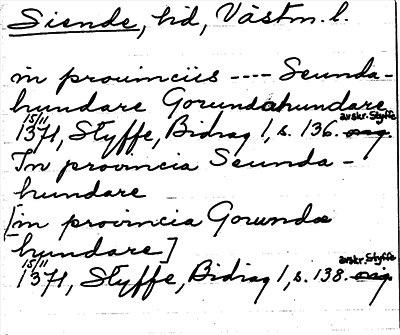 Siende, hd, Västm. l.
in prouinciis ---- Seunda-
hundare Gorundahundare
15/11 avskr. Styffe
1371, Styffe, Bidrag 1, s. 136. orig.
In prouincia Seunda-
hundare
[in prouincia Gorunda
hundare]
15/11 avskr. Styffe
1371, Styffe, Bidrag 1, s. 138. orig.